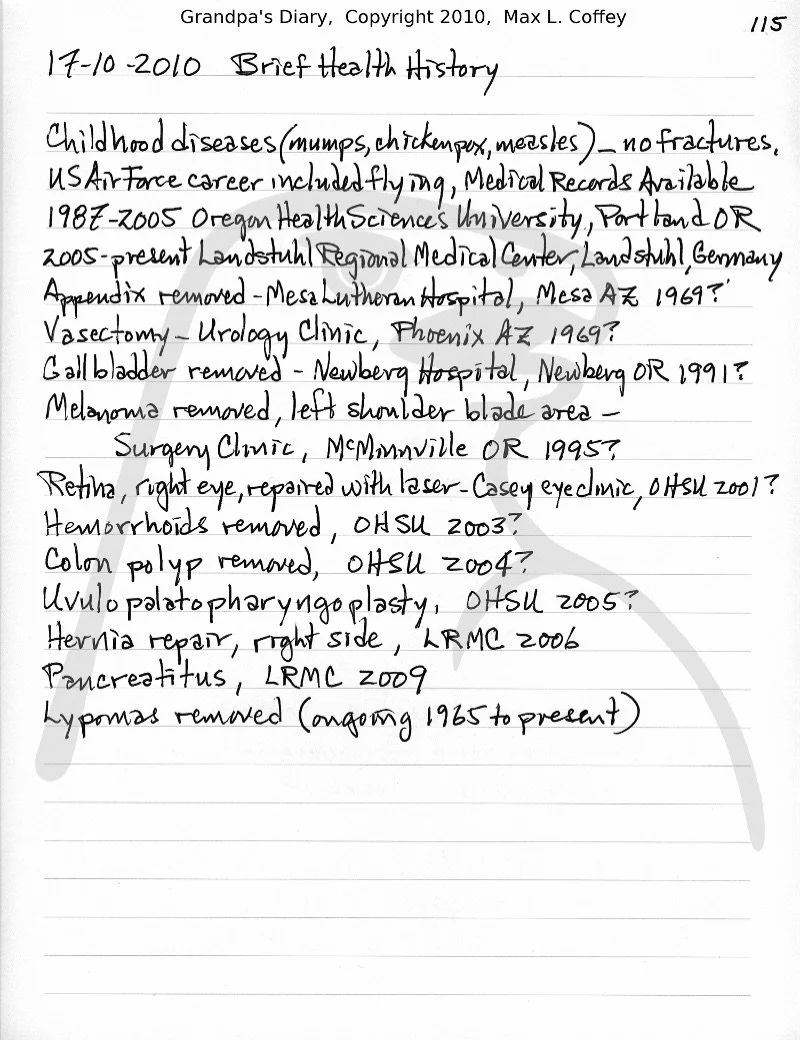 Grandpa's Diary, Copyright 2010, Max L. Coffey
115
17-10-2010 Brief Health History
Childhood diseases (mumps, chickenpox, measles) – no fractures.
US Air Force career included flying, Medical Records Available
1987-2005 Oregon Health Sciences University, Portland OR
2005-present Landstuhl Regional Medical Center, Landstuhl, Germany
Appendix removed - Mesa Lutheran Hospital, Mesa AZ 1969?
Vasectomy - Urology Clinic, Phoenix AZ 1969?
Gallbladder removed - Newberg Hospital, Newberg OR 1991?
Melanoma removed, left shoulder blade area -
Surgery Clinic, McMinnville OR 1995?
Retina, right eye, repaired with laser - Casey eye clinic, OHSU 2001?
Hemorrhoids removed, OHSU 2003?
Colon polyp removed, OHSU 2004?
Uvulopalatopharyngoplasty, OHSU 2005?
Hernia repair, right side, LRMC 2006
Pancreatitus, LRMC 2009
Lypomas removed (ongoing 1965 to present)